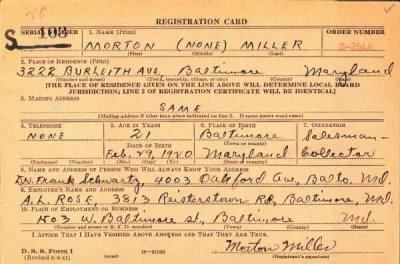 REGISTRATION CARD
SERIAL NUMBER 1. NAME (Print) ORDER NUMBER
S 105 MORTON (NONE) MILLER
(First) (Middle) (Last)
2. PLACE OF RESIDENCE (Print)
3222 BURLEITH AVE, Baltimore Maryland
(Number and street) (Town, township, village, or city) (County) (State)
[THE PLACE OF RESIDENCE GIVEN ON THE LINE ABOVE WILL DETERMINE LOCAL BOARD
JURISDICTION; LINE 2 OF REGISTRATION CERTIFICATE WILL BE IDENTICAL]
3. MAILING ADDRESS
SAME
[Mailing address if other than place indicated on line 2. If same insert word same]
4. TELEPHONE 5. AGE IN YEARS 6. PLACE OF BIRTH 7. OCCUPATION
NONE 21 Baltimore Salesman-
DATE OF BIRTH (Town or county)
Feb. 1920 Maryland Collector
(Exchange) (Number) (Mo.) (Day) (Yr.) (State or country)
8. NAME AND ADDRESS OF PERSON WHO WILL ALWAYS KNOW YOUR ADDRESS
Frank Schwartz, 4003 Oakford Ave, Balto. Md.
9. EMPLOYER'S NAME AND ADDRESS
A.L. ROSE, 3813 Reisterstown RD, Baltimore, Md.
10. PLACE OF EMPLOYMENT OR BUSINESS
503 W. Baltimore St, Baltimore Md.
(Number and street or R. F. D. number) (Town) (County) (State)
I AFFIRM THAT I HAVE VERIFIED ABOVE ANSWERS AND THAT THEY ARE TRUE.
D. S. S. Form 1
(Revised 6-9-41) Morton Miller
(Registrant's signature)